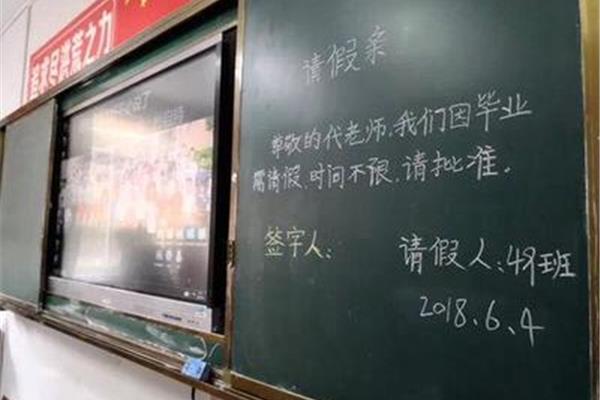 尽洪荒之力
请假亲
尊敬的代老师,我们因毕业
需请假,时间不限,请批准。
签字人:
请假人:49班
2018.6.4